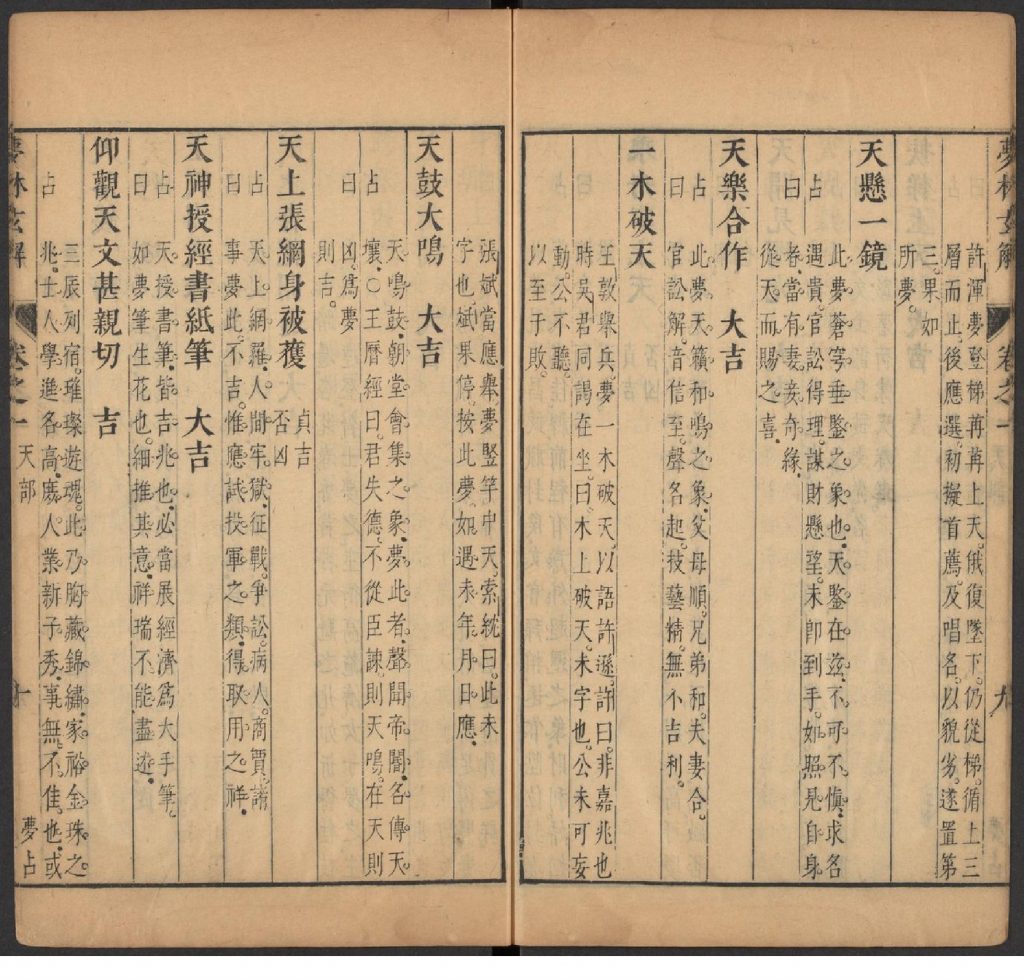 夢林玄解
卷之一
九
許渾夢登梯再再上天俄復墜下仍從梯循上三
層而止後應選初擬首薦及唱名以貌劣遂置第
三果如
所夢
天懸一鏡
占曰
此夢蒼穹垂鑒之象也天鑒在茲不可不慎求名
遇貴官訟得理謀財懸望未卽到手如照見自身
者當有妻妾奇緣
從天而賜之喜
天樂合作 大吉
占曰
此夢天籟和鳴之象父母順兄弟和夫妻合
官訟解音信至聲名起技藝精無不吉利
一木破天
王敦舉兵夢一木破天以語許遜許曰非嘉兆也
時吳君同謁在坐曰木上破天未字也公未可妄
動公不聽
以至于敗
張斌當應舉夢竪竿中天索紞曰此未
字也斌果停按此夢如遇未年月日應
天鼓大鳴 大吉
占曰
天鳴鼓朝堂會集之象夢此者聲聞帝閽名傳天
壤○王曆經曰君失德不從臣諫則天鳴在天則
凶爲夢
則吉
天上張網身被獲 貞吉否凶
占曰
天上網羅人間牢獄征戰爭訟病人商賈諸
事夢此不吉惟應試投軍之類得取用之祥
天神授經書紙筆 大吉
占曰
天授書筆皆吉兆也必當展經濟爲大手筆
如夢筆生花也細推其意祥瑞不能盡述
仰觀天文甚親切 吉
占
三辰列宿璀璨遊魂此乃胸藏錦繡家裕金珠之
兆士人學進名高庶人業新子秀事無不佳也或
夢林玄解
卷之一
天部
十
夢占